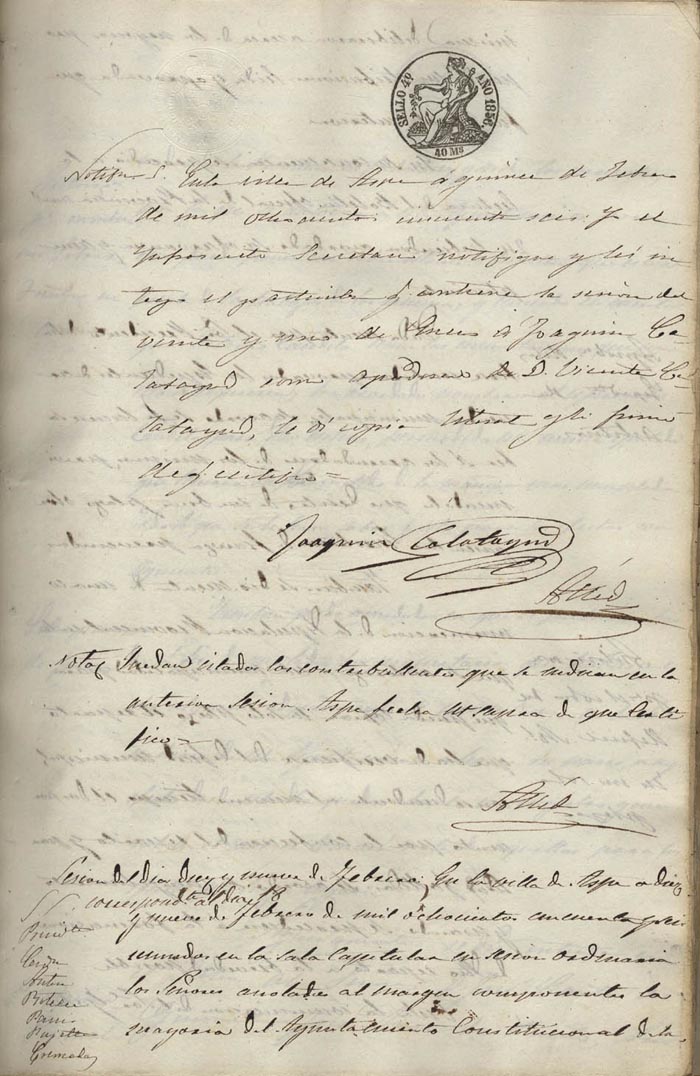 SELLO 4º AÑO 1856
40 Ms
En la villa de Aspe á quince de Febro
de mil ochocientos cincuenta y seis: Yo el
Infrascrito Secretario notifiqué y leí in
tegro el particular q contiene la sesion del
veinte y uno de Enero á Joaquin Ca-
latayud como apoderado de D. Vicente Ca
latayud, le dí copia literal y lo firmó
de q certifico =
Joaquin Calatayud
Nota Quedan citados los contribuyentes que se indican en la
anterior sesion. Aspe fecha ut supra de que certi
fico =
Sesion del dia diez y nueve de Febrero: En la villa de Aspe a diez
correspondte al dia 18
y nueve de Febrero de mil ochocientos cincuenta y seis
reunidos en la Sala Capitular en sesion ordinaria
los Señores anotados al margen componentes la
mayoria del Ayuntamiento Constitucional de la
SS.
Presidte
Cerdn
Anton
Botella
Cremades